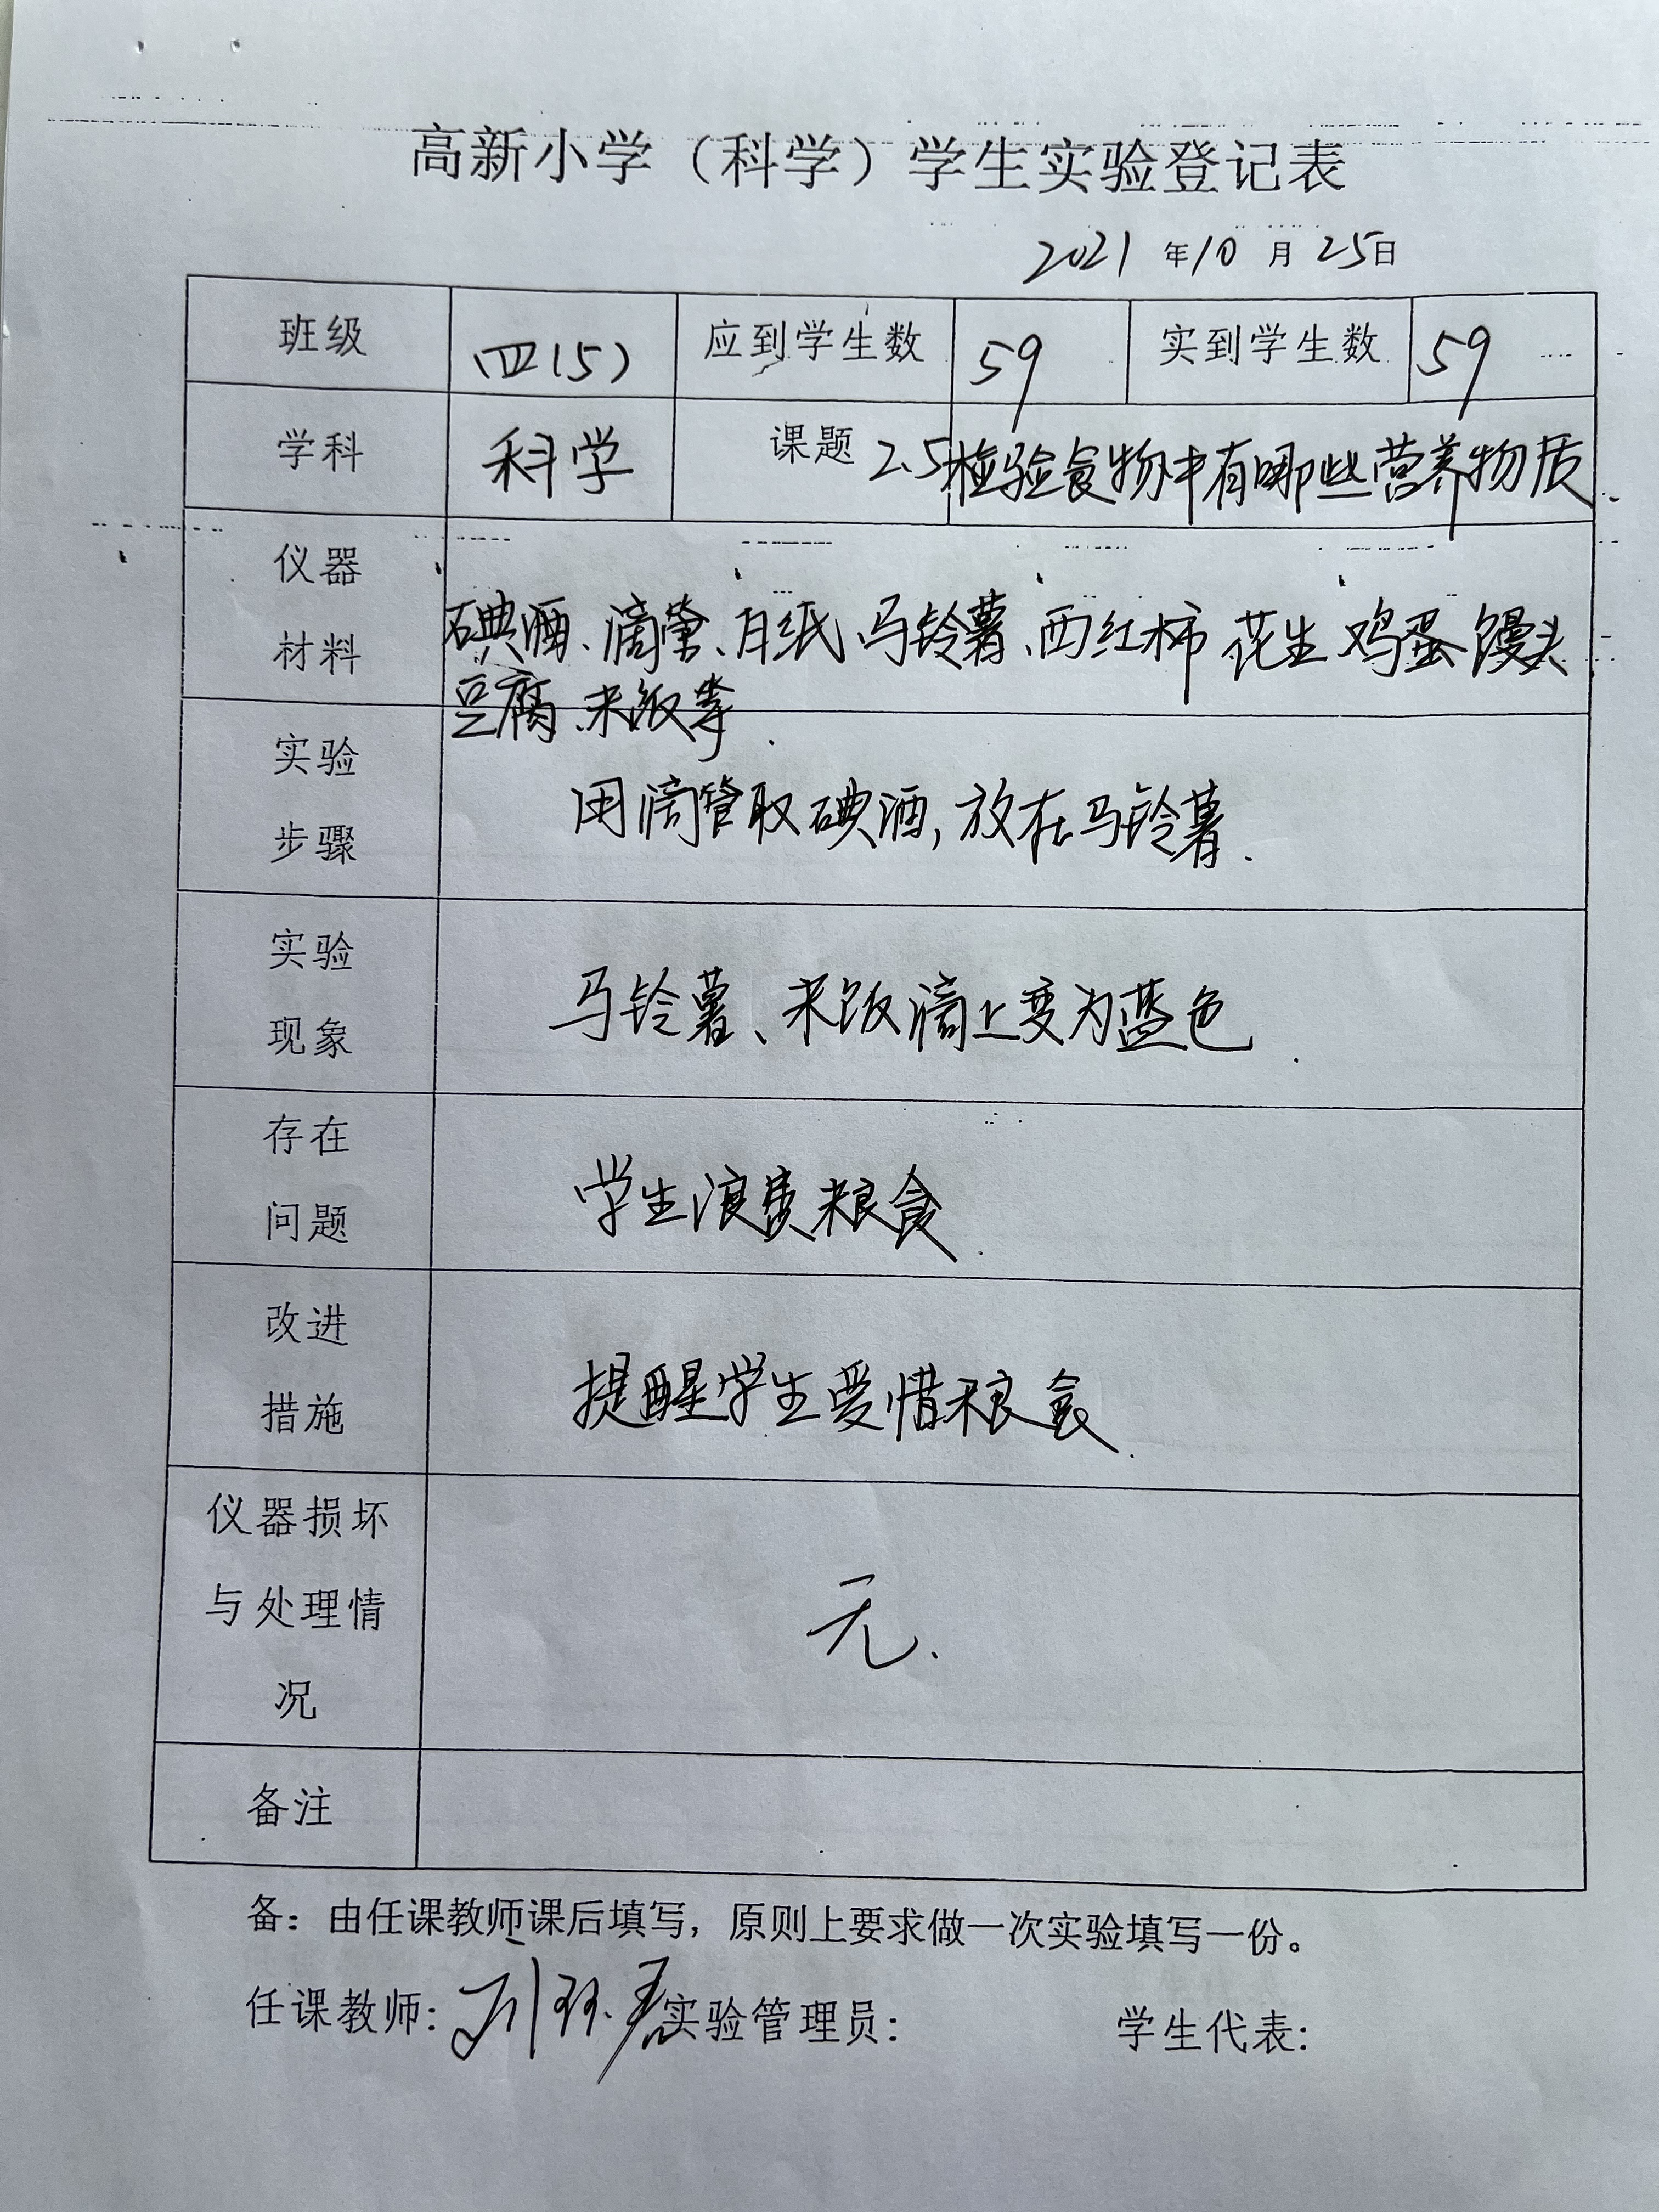 高新小学（科学）学生实验登记表
2021 年 10 月 25 日
班级 四（5） 应到学生数 59 实到学生数 59
学科 科学 课题 2.5检验食物中有哪些营养物质
仪器
材料
碘酒、滴管、白纸、马铃薯、西红柿 花生 鸡蛋 馒头
豆腐、米饭等.
实验
步骤
用滴管取碘酒,放在马铃薯.
实验
现象
马铃薯、米饭滴上变为蓝色.
存在
问题
学生浪费粮食.
改进
措施
提醒学生爱惜粮食.
仪器损坏
与处理情
况
无.
备注
备：由任课教师课后填写，原则上要求做一次实验填写一份。
任课教师: 实验管理员: 学生代表: